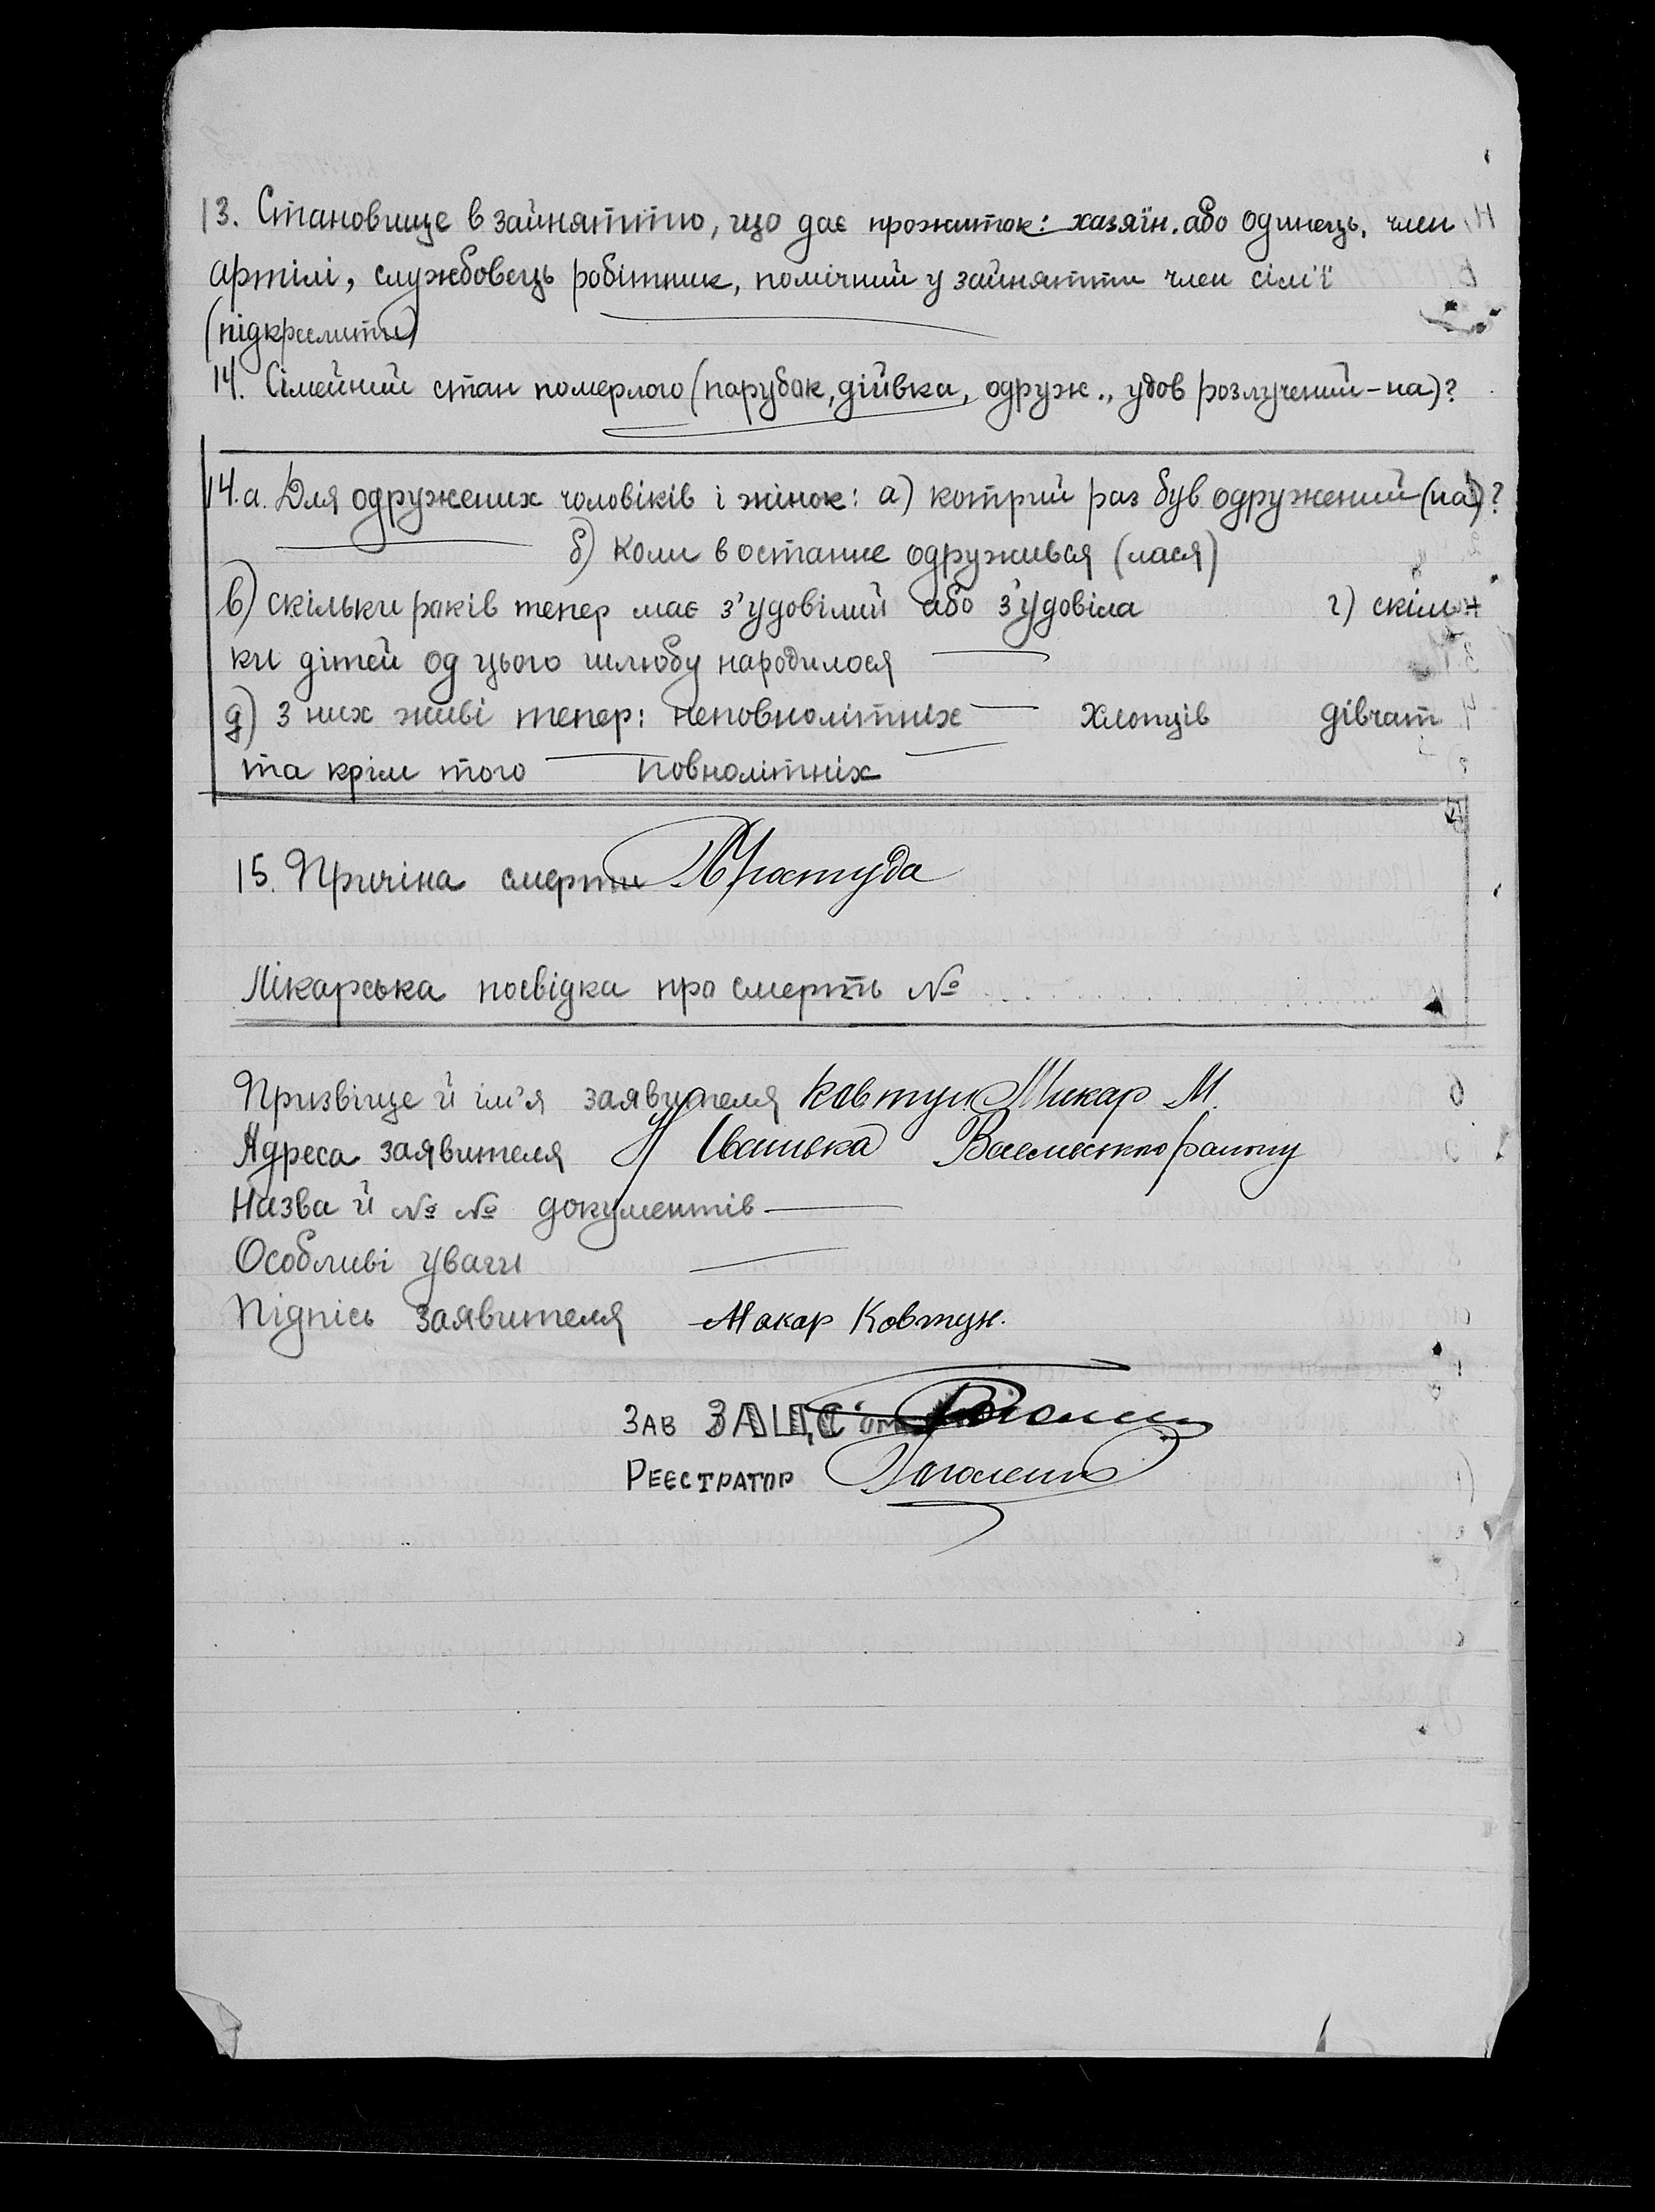 13. Становище в зайняттю, що дає прожиток: хазяїн. або одинець, член
артілі, службовець робітник, помічний у зайнятти член сілі'ї
(підкреслити)
14. Сімейний стан померлого (парубок, дійвка, одруж., удов розлучений-на)?
14.а. Для одружених чоловіків і жінок: а) котрий раз був одружений (на)?
б) коли в останнє одружився (лася)
в) скільки років тепер має з'удовілий або з'удовіла г) скіль-
ки дітей од цього шлюбу народилося
д) з них живі тепер: неповнолітніх хлопців дівчат
та крім того повнолітніх
15. Причіна смерти Простуда
Лікарська посвідка про смерть №
Призвіще й ім'я заявителя Ковтун Макар М.
Адреса заявителя району
Назва й № № документів
Особливі уваги
Підпісь заявителя Макар Ковтун.
Зав ЗАЦС
Реєстратор